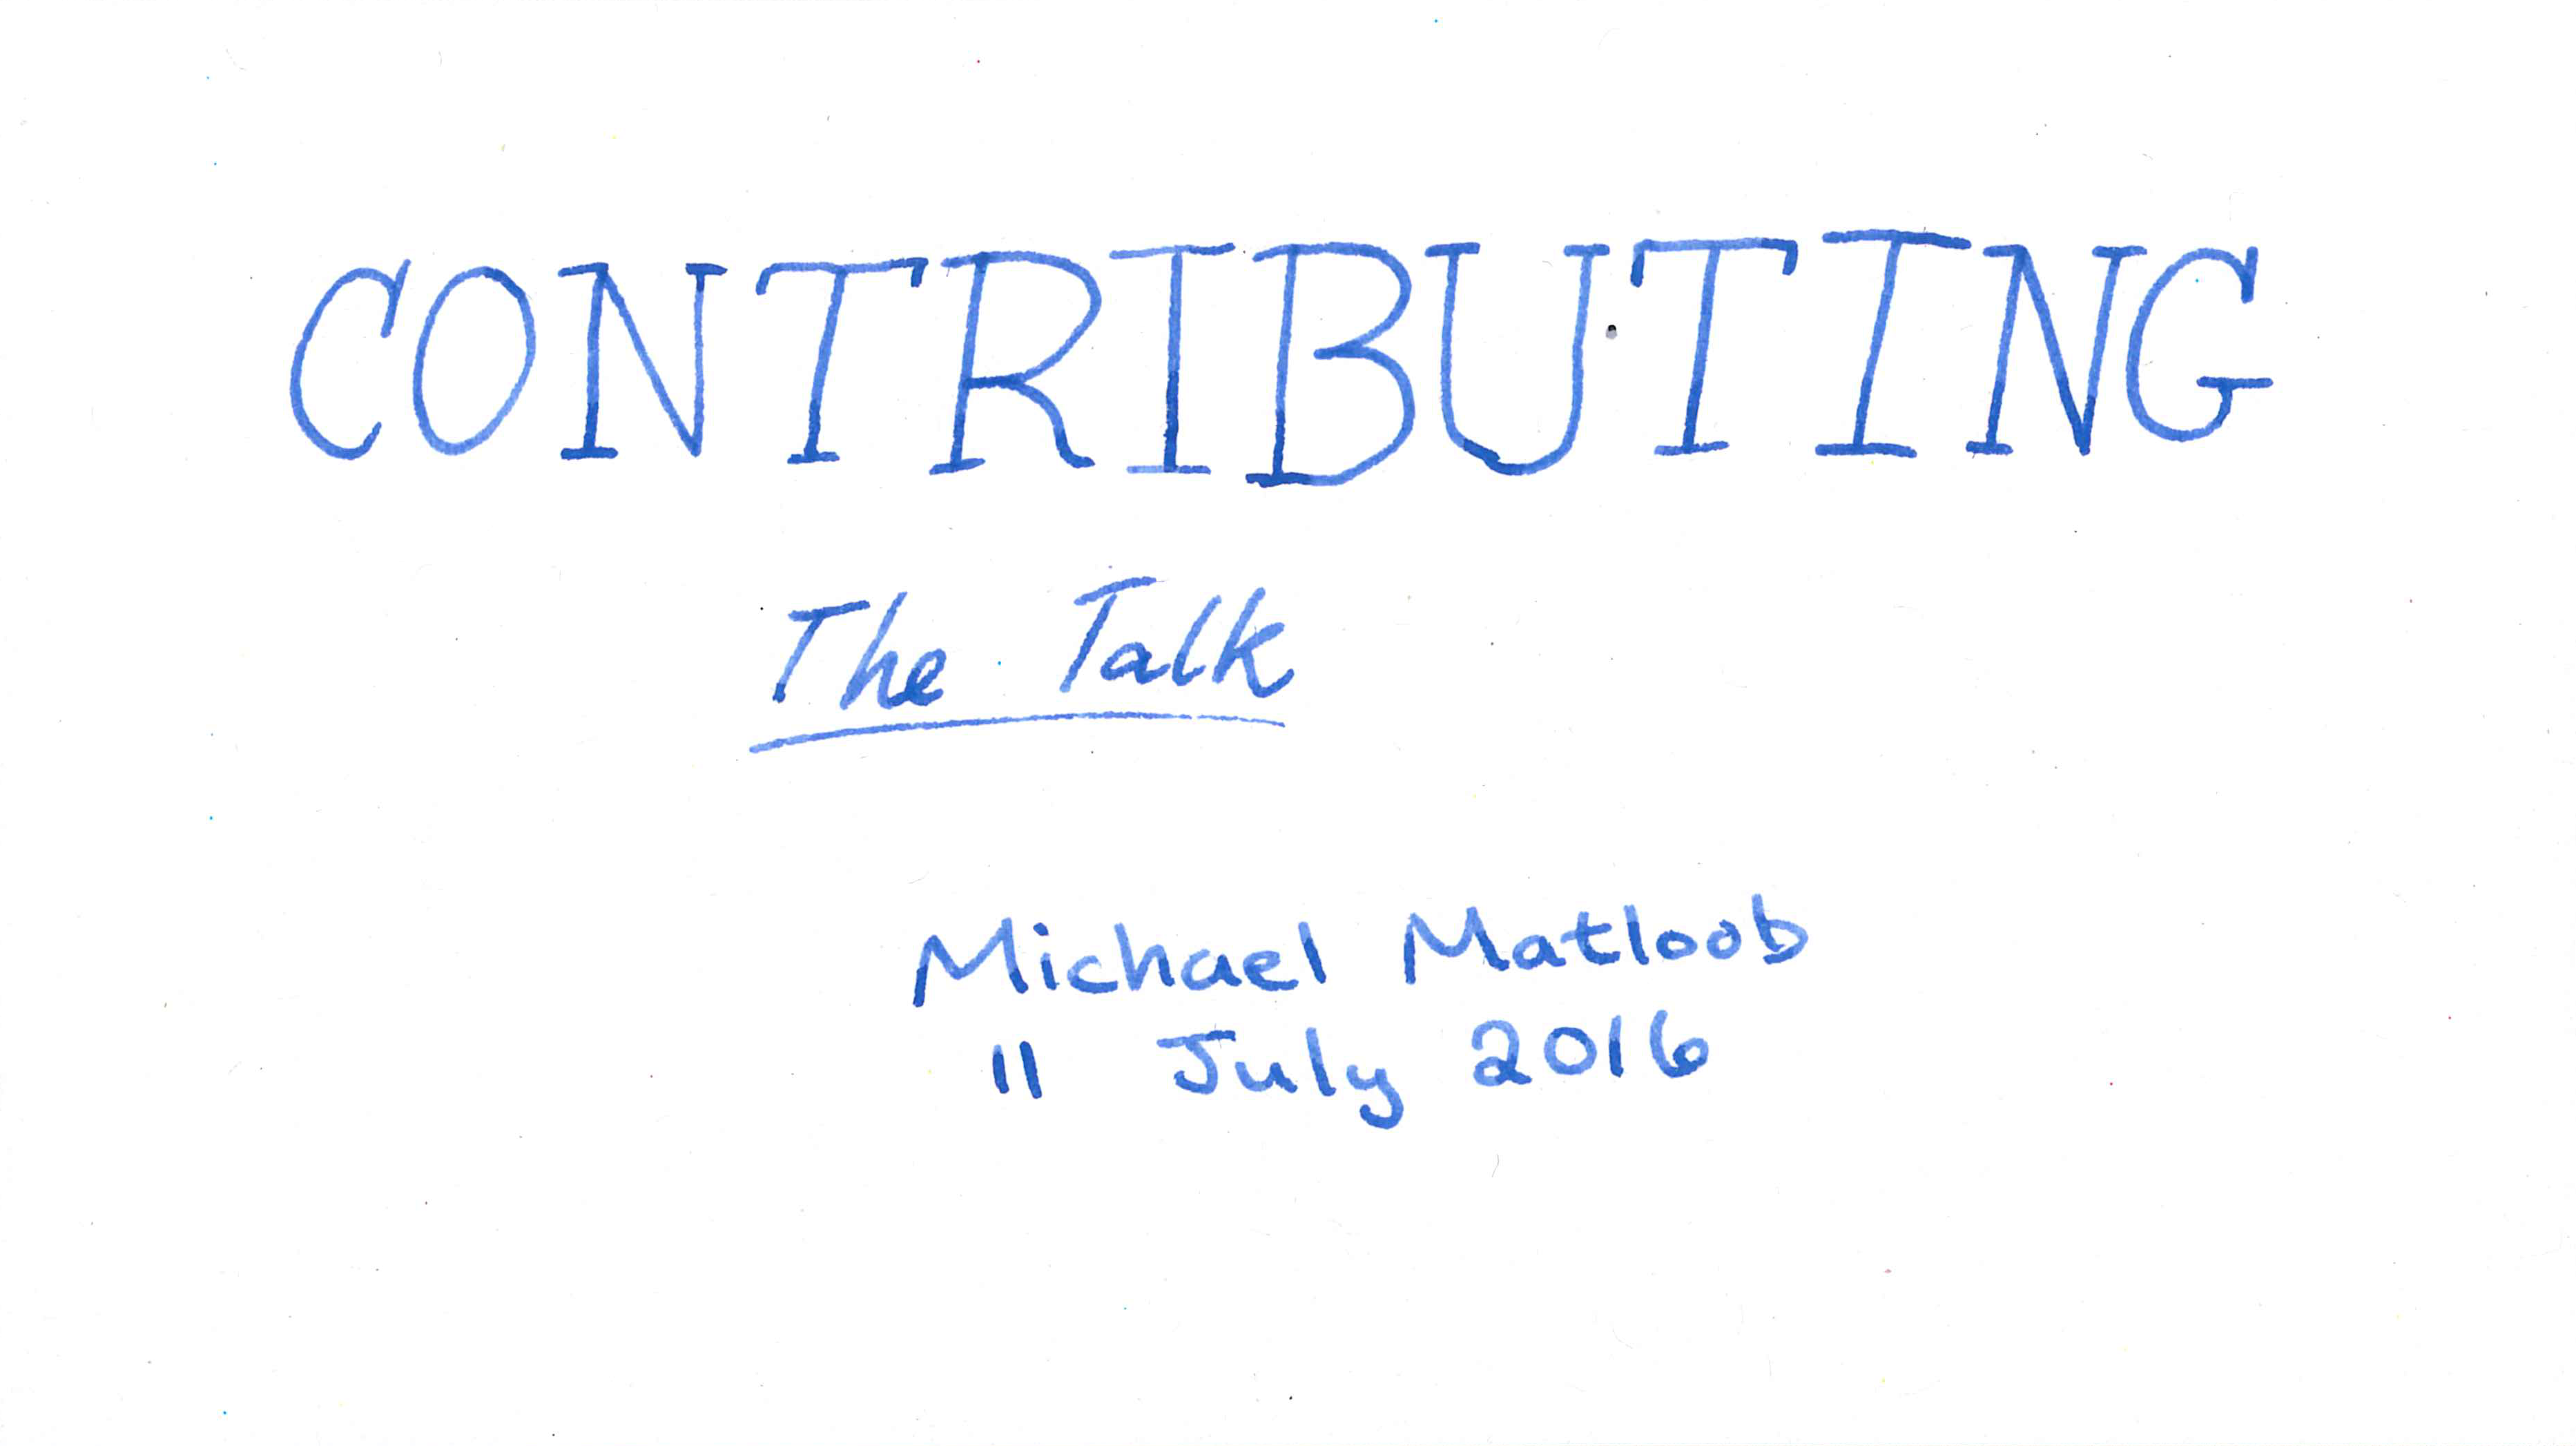 CONTRIBUTING
The Talk
Michael Matloob
11 July 2016